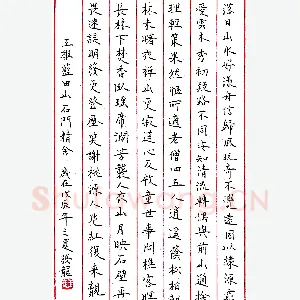 落日山水好漾舟信歸風玩奇不覺遠因以緣源窮遙
愛雲木秀初疑路不同安知清流轉偶與前山通捨舟
理輕策果然愜所適老僧四五人逍遙蔭松柏朝梵
林未曙夜禪山更寂道心及牧童世事問樵客暝宿
長林下焚香臥瑤席澗芳襲人衣山月映石壁再尋
畏迷誤明發更登歷笑謝桃源人花紅復來覿
王維藍田山石門精舍 歲在戊辰年之夏振龍